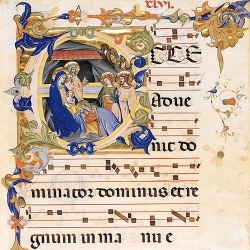 xlvi.
CCE
adve
nit do
minator dominus et re
gnum in ma nu e